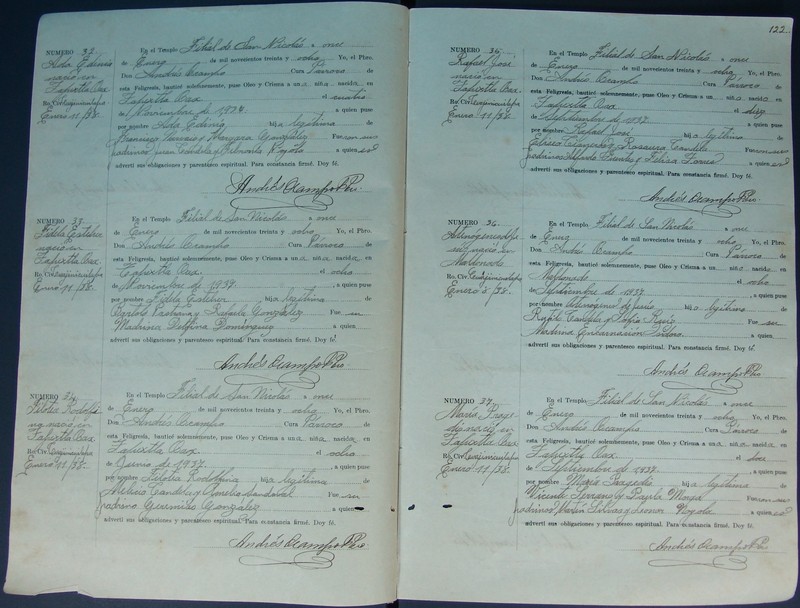 NUMERO 32.
Aida Edivia
nació en
Tapextla Oax
Ro. Civ. Cuajinicuilapa
Enero 11/38.
En el Templo Filial de San Nicolás a once
de Enero de mil novecientos treinta y ocho Yo, el Pbro.
Don Andrés Ocampo Cura Párroco de
esta Feligresía, bauticé solemnemente, puse Oleo y Crisma a una niña nacida en
Tapextla Oax. el cuatro
de Noviembre de 1937. a quien puse
por nombre hija legítima de
González Fueron sus
padrinos Juan Candela y Noyola a quienes
advertí sus obligaciones y parentesco espiritual. Para constancia firmé. Doy fé.
Andrés Ocampo Pbro.
NUMERO 33.
Fidela Esther
nació en
Tapextla Oax.
Ro. Civ. Cuajinicuilapa
Enero 11/38.
En el Templo Filial de San Nicolás a once
de Enero de mil novecientos treinta y ocho Yo, el Pbro.
Don Andrés Ocampo Cura Párroco de
esta Feligresía, bauticé solemnemente, puse Oleo y Crisma a una niña nacida en
Tapextla Oax. el ocho
de Noviembre de 1937. a quien puse
por nombre Fidela hija legítima de
Bartolo Pastrana y Rafaela González Fue su
Madrina Delfina Domínguez a quien
advertí sus obligaciones y parentesco espiritual. Para constancia firmé. Doy fé.
Andrés Ocampo Pbro
NUMERO 34.
nació en
Tapextla Oax.
Ro. Civ. Cuajinicuilapa
Enero 11/38.
En el Templo Filial de San Nicolás a once
de Enero de mil novecientos treinta y ocho Yo, el Pbro.
Don Andrés Ocampo Cura Párroco de
esta Feligresía, bauticé solemnemente, puse Oleo y Crisma a una niña nacida en
Tapextla Oax. el ocho
de Junio de 1937. a quien puse
por nombre hija legítima de
Candela y Sandoval Fue su
padrino González a quien
advertí sus obligaciones y parentesco espiritual. Para constancia firmé. Doy fé.
Andrés Ocampo Pbro.
122
NUMERO 35.
Rafael José
nació en
Tapextla Oax.
Ro. Civ. Cuajinicuilapa
Enero 11/38.
En el Templo Filial de San Nicolás a once
de Enero de mil novecientos treinta y ocho Yo, el Pbro.
Don Andrés Ocampo Cura Párroco de
esta Feligresía, bauticé solemnemente, puse Oleo y Crisma a un niño nacido en
Tapextla Oax el diez
de Septiembre de 1937. a quien puse
por nombre Rafael José hijo legítimo de
Eliseo Cisneros y Rosaura Fueron sus
padrinos y Felisa a quienes
advertí sus obligaciones y parentesco espiritual. Para constancia firmé. Doy fé.
Andrés Ocampo Pbro.
NUMERO 36.
nació en
Maldonado
Ro. Civ. Cuajinicuilapa
Enero 8/38.
En el Templo Filial de San Nicolás a once
de Enero de mil novecientos treinta y ocho Yo, el Pbro.
Don Andrés Ocampo Cura Párroco de
esta Feligresía, bauticé solemnemente, puse Oleo y Crisma a un niño nacido en
Maldonado el ocho
de Septiembre de 1937. a quien puse
por nombre Atenogenes de Jesús hijo legítimo de
y Sofía Fue su
Madrina Encarnación a quien
advertí sus obligaciones y parentesco espiritual. Para constancia firmé. Doy fé.
Andrés Ocampo Pbro
NUMERO 37.
nació en
Tapextla Oax
Ro. Civ. Cuajinicuilapa
Enero 11/38.
En el Templo Filial de San Nicolás a once
de Enero de mil novecientos treinta y ocho Yo, el Pbro.
Don Andrés Ocampo Cura Párroco de
esta Feligresía, bauticé solemnemente, puse Oleo y Crisma a un niño nacido en
Tapextla Oax. el
de Septiembre de 1937. a quien puse
por nombre Mario hijo legítimo de
Vicente Serrano y Paula Fueron sus
padrinos Martín y Leonor Noyola a quienes
advertí sus obligaciones y parentesco espiritual. Para constancia firmé. Doy fé.
Andrés Ocampo Pbro